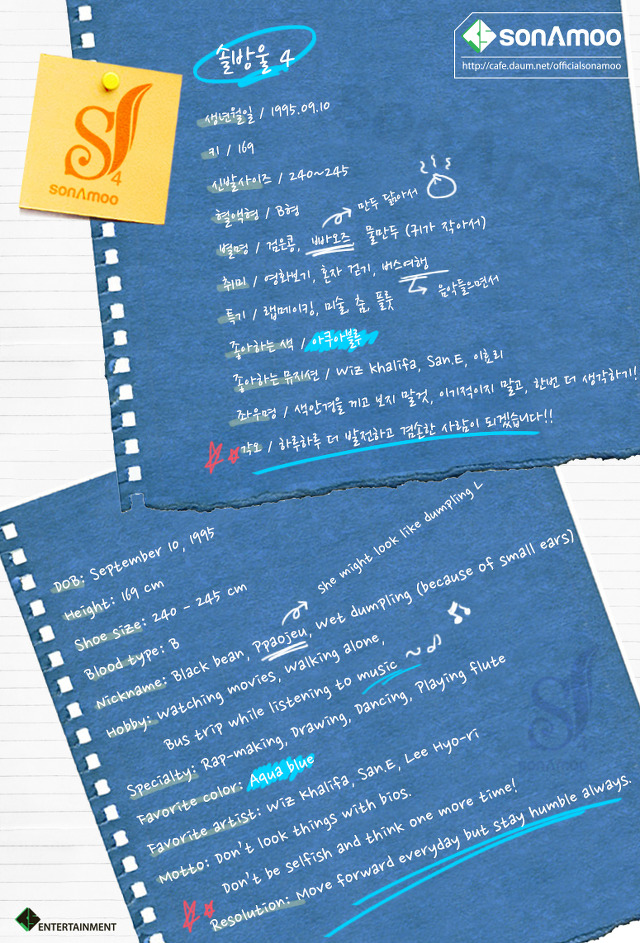 sonAmoo
http://cafe.daum.net/officialsonamoo
솔방울 4
S 4
sonAmoo
생년월일 / 1995.09.10
키 / 169
신발사이즈 / 240~245
혈액형 / B형
만두 닮아서
별명 / 검은콩, 빠오즈 물만두 (귀가 작아서)
취미 / 영화보기, 혼자 걷기, 버스여행
음악들으면서
특기 / 랩메이킹, 미술, 춤, 플룻
좋아하는 색 / 아쿠아블루
좋아하는 뮤지션 / Wiz khalifa, San.E, 이효리
좌우명 / 색안경을 끼고 보지 말것, 이기적이지 말고, 한번 더 생각하기!
각오 / 하루하루 더 발전하고 겸손한 사람이 되겠습니다!!
DOB: September 10, 1995
Height: 169 cm
Shoe size: 240 - 245 cm
Blood type: B
she might look like dumpling L
Nickname: Black bean, Ppaojeu, wet dumpling (because of small ears)
Hobby: Watching movies, Walking alone,
Bus trip while listening to music ~
Specialty: Rap-making, Drawing, Dancing, Playing flute
Favorite color: Aqua blue
Favorite artist: Wiz Khalifa, San.E, Lee Hyo-ri
Motto: Don't look things with bios.
Don't be selfish and think one more time!
Resolution: Move forward everyday but stay humble always.
ENTERTAINMENT